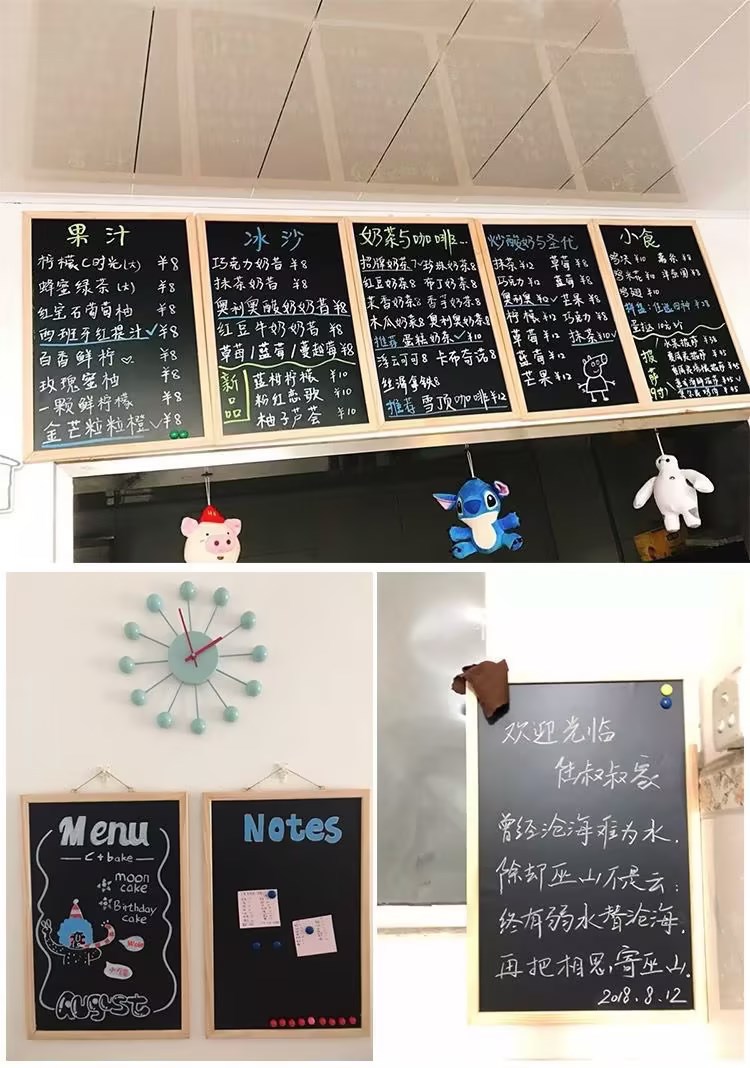 果汁
柠檬C时光(大) ¥8
蜂蜜绿茶(大) ¥8
红宝石葡萄柚 ¥8
西班牙红果汁✓¥8
百香鲜柠♡ ¥8
玫瑰蜜柚 ¥8
一颗鲜柠檬 ¥8
金芒粒粒橙✓¥8
冰沙
巧克力奶昔 ¥8
抹茶奶昔 ¥8
奥利奥酸奶奶昔 ¥8
红豆牛奶奶昔 ¥8
草莓/蓝莓/蔓越莓 ¥8
新品
蓝柑柠檬 ¥10
粉红恋歌 ¥10
柚子芦荟 ¥10
奶茶与咖啡...
招牌奶茶7 珍珠奶茶8
红豆奶茶8 布丁奶茶8
茉香奶茶8 香芋奶茶8
木瓜奶茶8 奥利奥奶茶9
推荐 蛋糕奶茶✓¥10
浮云可可8 卡布奇诺8
丝滑拿铁8
推荐 雪顶咖啡¥12
炒酸奶与圣代
抹茶¥12 草莓¥8
巧克力¥12 蓝莓¥8
奥利奥¥12✓ 芒果¥8
柠檬¥12 巧克力¥8
草莓¥12 抹茶¥10✓
蓝莓¥12
芒果¥12
小食
披萨
Menu
C+bake
moon cake
Birthday cake
August
Notes
欢迎光临
焦叔叔家
曾经沧海难为水,
除却巫山不是云;
终有弱水替沧海,
再把相思寄巫山.
2018.8.12